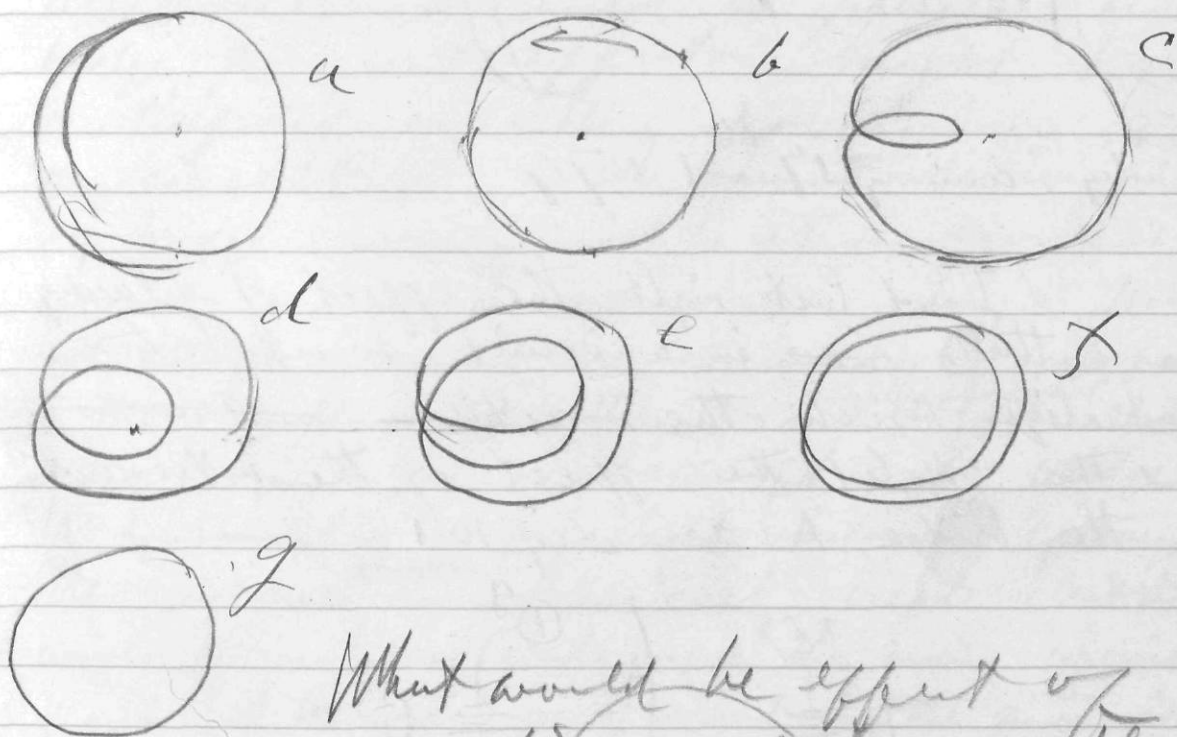 a b c
d e f
g
What would be effect of